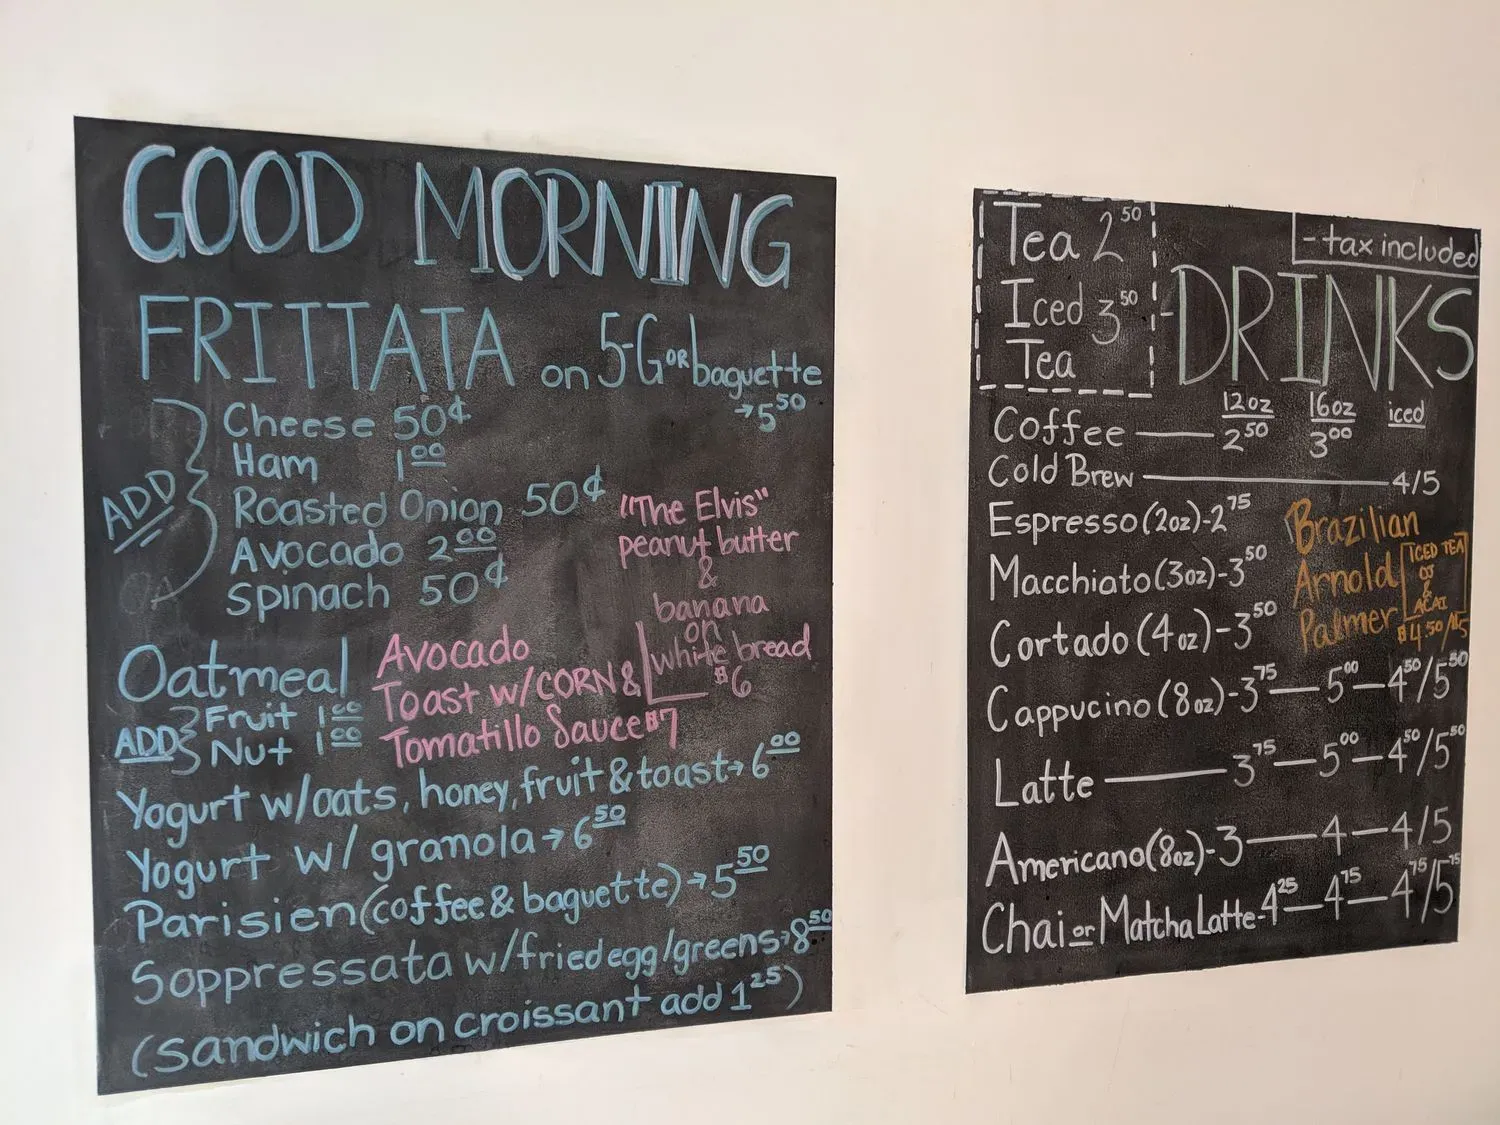 GOOD MORNING
FRITTATA on 5-G OR baguette
→5⁵⁰
ADD
Cheese 50¢
Ham 1⁰⁰
Roasted Onion 50¢
Avocado 2⁰⁰
Spinach 50¢
"The Elvis"
peanut butter
&
banana
on
white bread
$6
Oatmeal
ADD
Fruit 1⁰⁰
Nut 1⁰⁰
Avocado
Toast w/CORN &
Tomatillo Sauce $7
Yogurt w/oats, honey, fruit & toast→ 6⁰⁰
Yogurt w/ granola→ 6⁵⁰
Parisien (coffee & baguette)→ 5⁵⁰
Soppressata w/fried egg/greens→8⁵⁰
(Sandwich on croissant add 1²⁵)
Tea 2⁵⁰
Iced 3⁵⁰
Tea
- tax included
DRINKS
12oz 16oz iced
Coffee — 2⁵⁰ 3⁰⁰
Cold Brew — 4/5
Espresso (2oz) - 2⁷⁵
Macchiato (3oz) - 3⁵⁰
Cortado (4oz) - 3⁵⁰
Brazilian
Arnold
Palmer
ICED TEA
OJ
&
ACAI
Cappucino (8oz) - 3⁷⁵ — 5⁰⁰ — 4⁵⁰/5⁵⁰
Latte — 3⁷⁵ — 5⁰⁰ — 4⁵⁰/5⁵⁰
Americano (8oz) - 3 — 4 — 4/5
Chai or Matcha Latte - 4²⁵ — 4⁷⁵ — 4⁷⁵/5⁷⁵